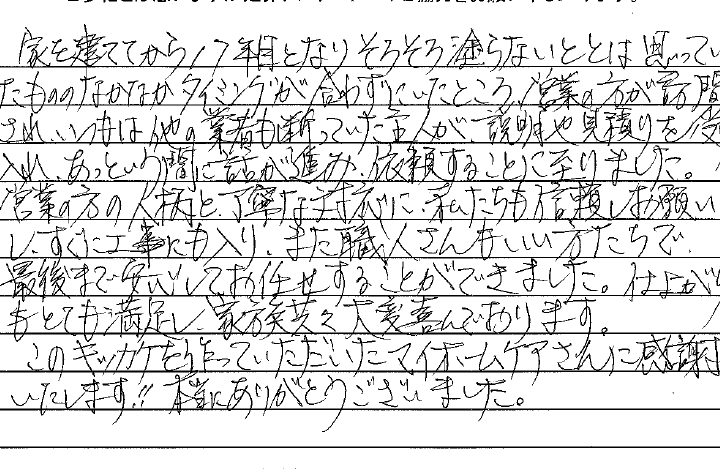 家を建ててから17年目となりそろそろ塗らないととは思ってい
たもののなかなかタイミングが合わずにいたところ、営業の方が訪問
され、いつもは他の業者も断っていた主人が、説明や見積りを受
入れ、あっという間に話が進み、依頼することに至りました。
営業の方の人柄と、丁寧な対応に、私たちも信頼しお願い
し、すぐに工事にも入り、また職人さんもいい方たちで、
最後まで安心してお任せすることができました。仕上がり
もとても満足し、家族共々大変喜んでおります。
このキッカケを作っていただいたマイホームケアさんに感謝
いたします!! 本当にありがとうございました。